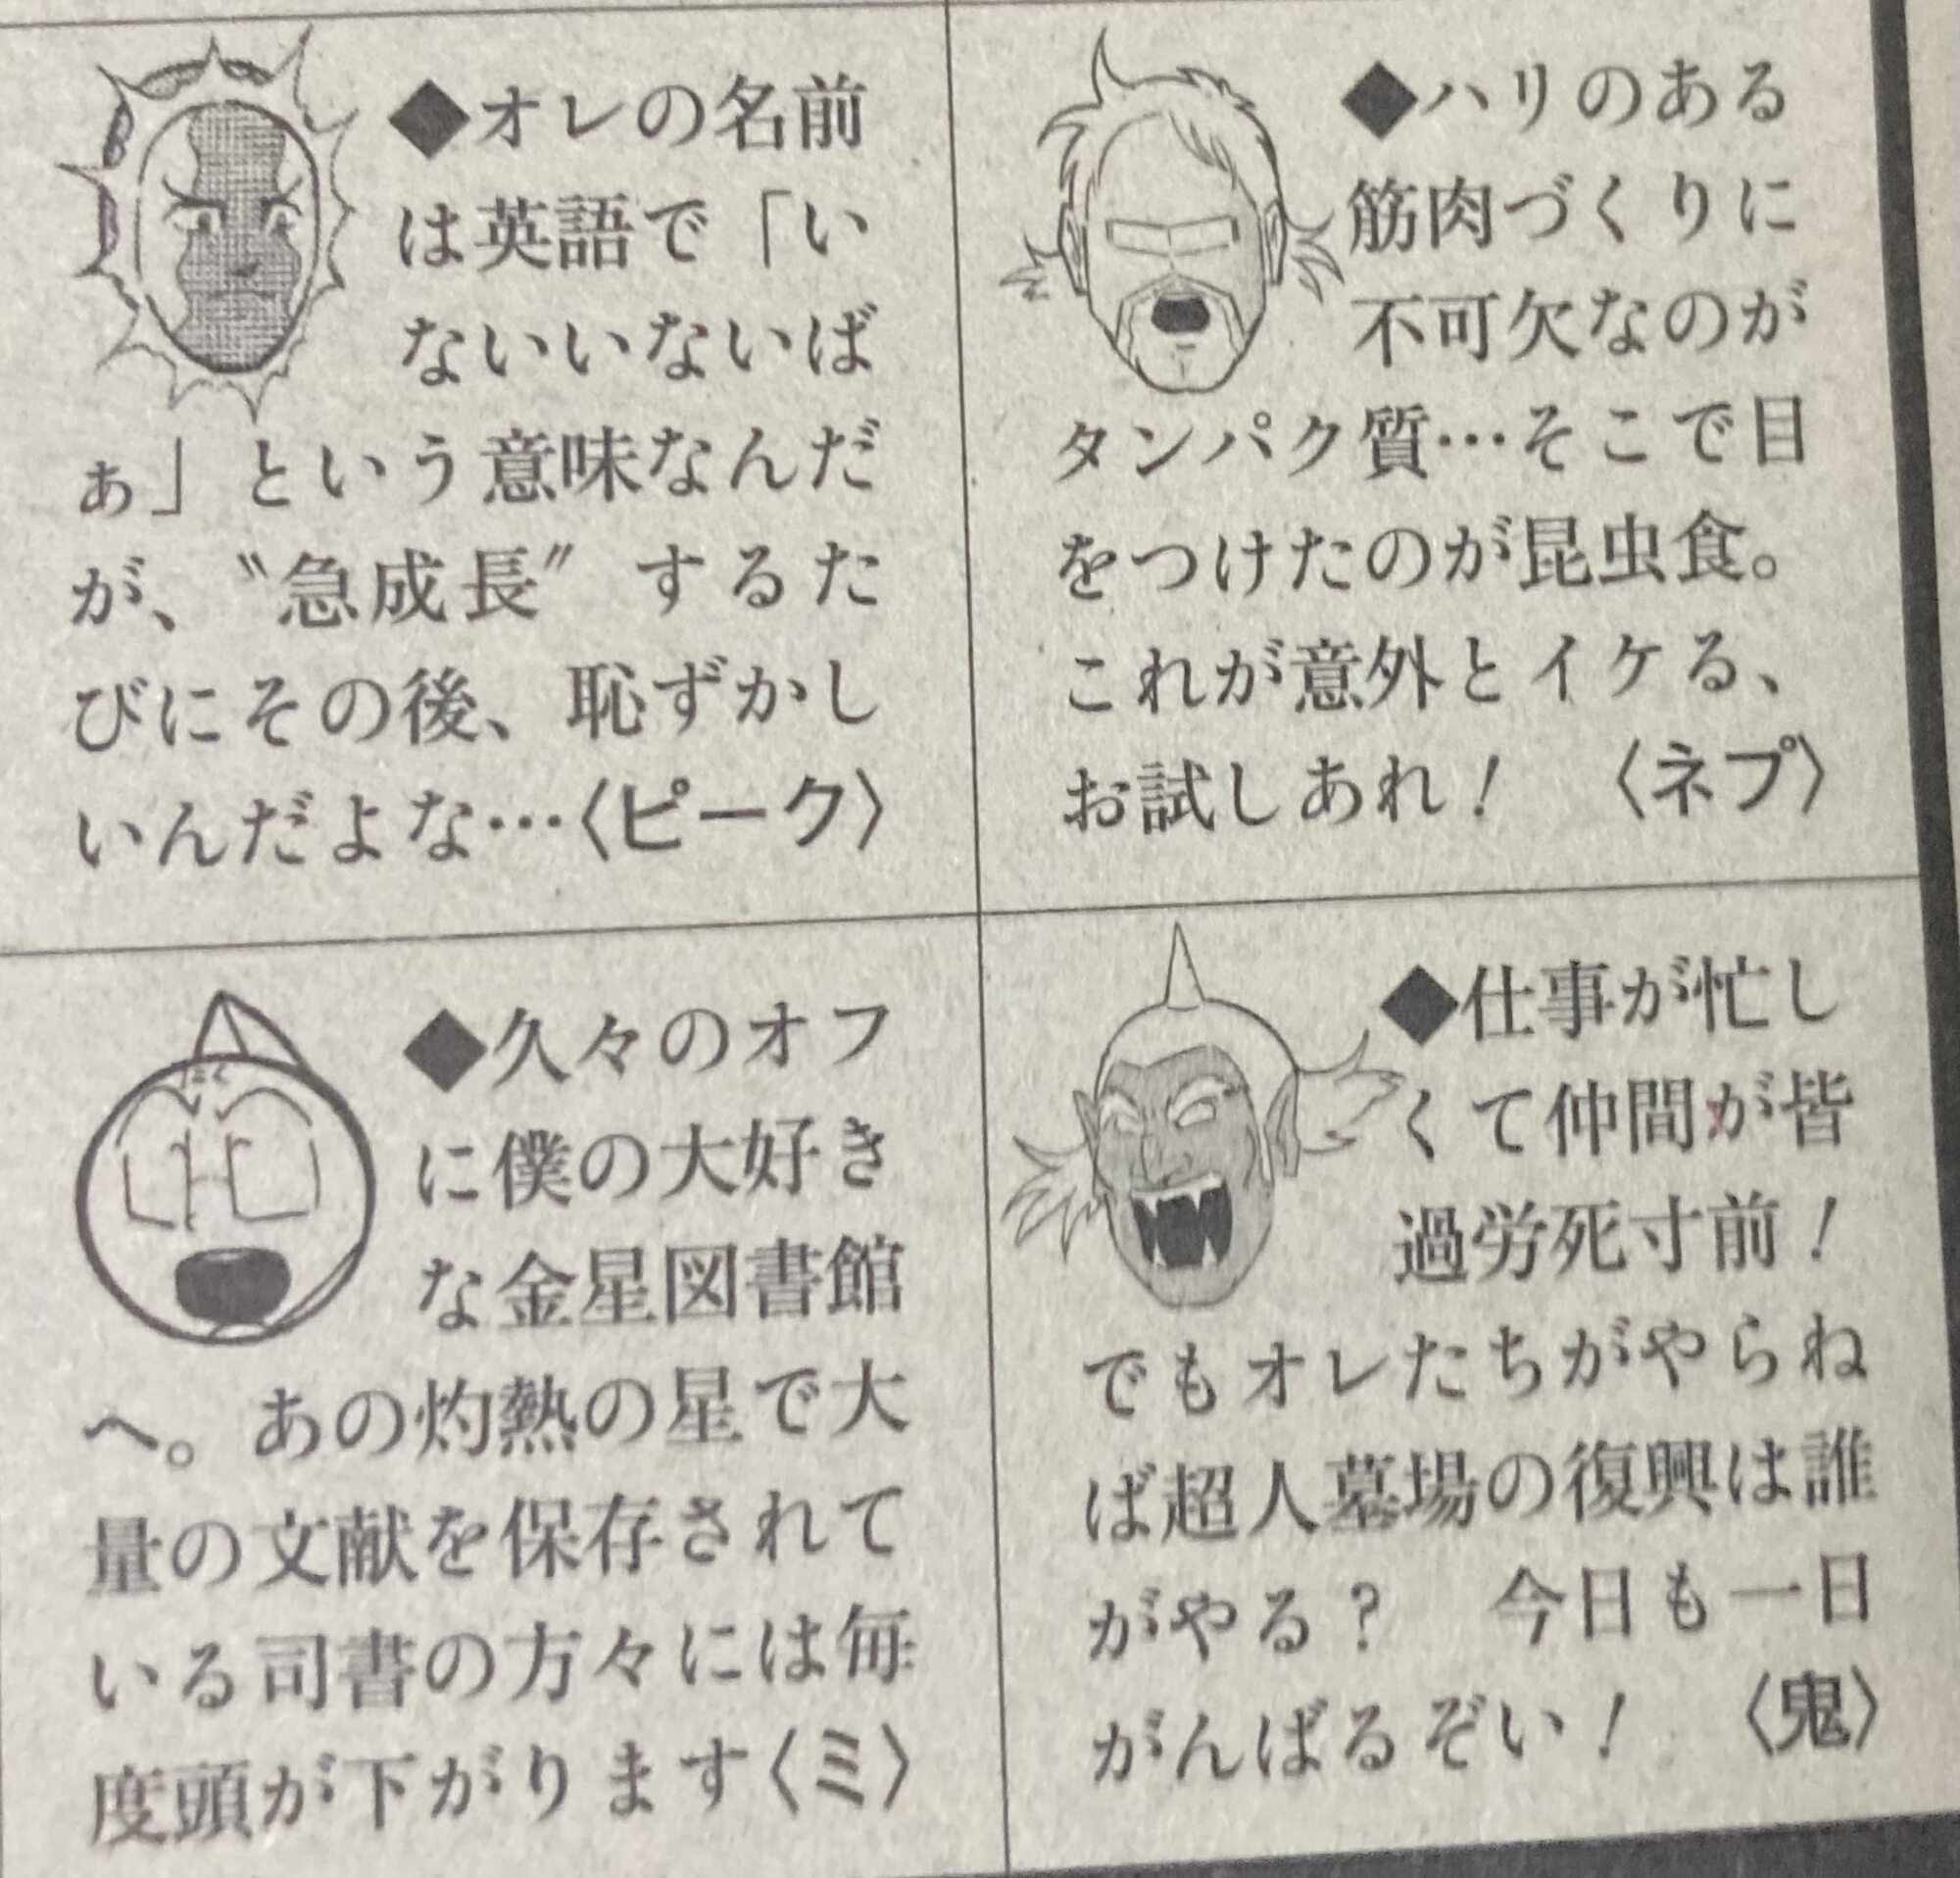 ◆オレの名前
は英語で「い
ないいないば
ぁ」という意味なんだ
が、〝急成長〟するた
びにその後、恥ずかし
いんだよな…〈ピーク〉
◆ハリのある
筋肉づくりに
不可欠なのが
タンパク質…そこで目
をつけたのが昆虫食。
これが意外とイケる、
お試しあれ！　〈ネプ〉
◆久々のオフ
に僕の大好き
な金星図書館
へ。あの灼熱の星で大
量の文献を保存されて
いる司書の方々には毎
度頭が下がります〈ミ〉
◆仕事が忙し
くて仲間が皆
過労死寸前！
でもオレたちがやらね
ば超人墓場の復興は誰
がやる？　今日も一日
がんばるぞい！　〈鬼〉